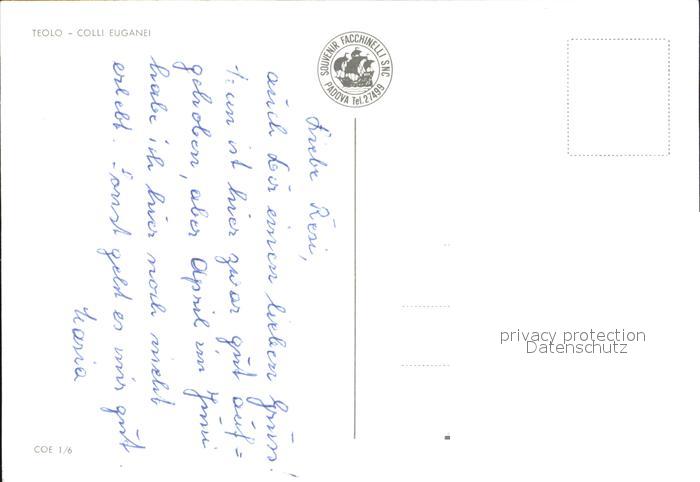 TEOLO – COLLI EUGANEI
SOUVENIR FACCHINELLI SNC
PADOVA Tel. 27499
Liebe Resi,
auch Dir einen lieben Gruss!
ist hier zwar gut auf=
gehoben, aber April im Juni
habe ich hier noch nicht
erlebt. Sonst geht es mir gut.
Maria
privacy protection
Datenschutz
COE 1/6